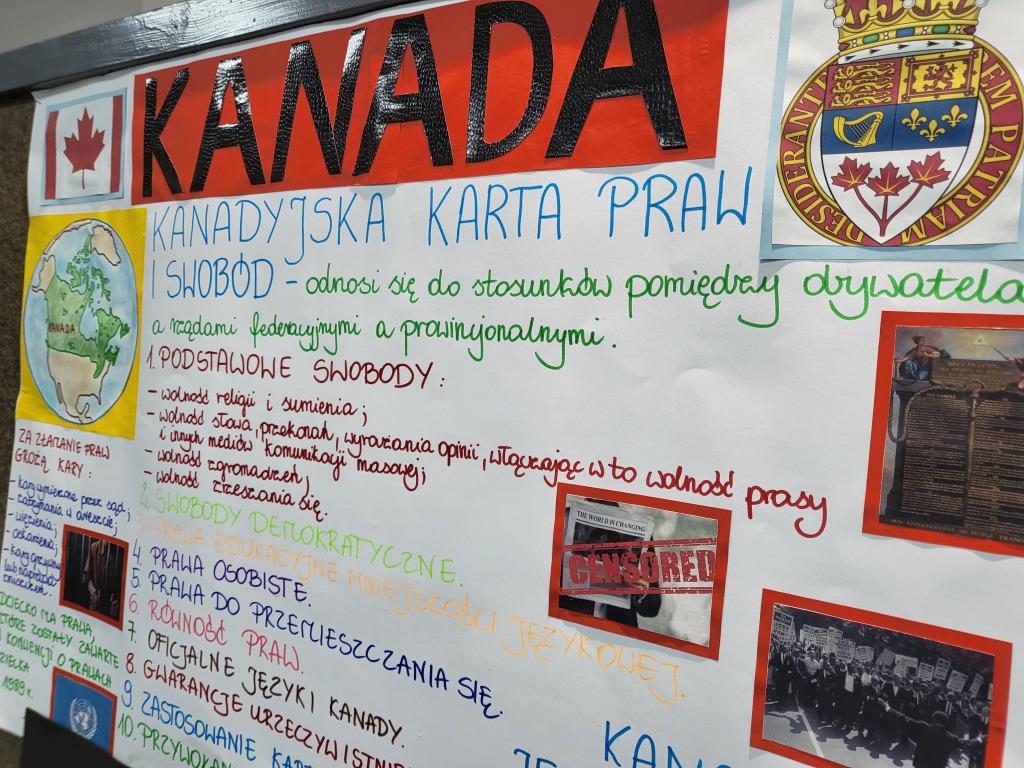 KANADA
KANADYJSKA KARTA PRAW
I SWOBÓD – odnosi się do stosunków pomiędzy obywatela
a rządami federacyjnymi a prowincjonalnymi.
1. PODSTAWOWE SWOBODY:
– wolność religii i sumienia;
– wolność słowa, przekonań, wyrażania opinii, włączając w to wolność prasy
i innych mediów komunikacji masowej;
– wolność zgromadzeń;
– wolność zrzeszania się.
2. SWOBODY DEMOKRATYCZNE.
3. PRAWA EDUKACYJNE MNIEJSZOŚCI JĘZYKOWEJ.
4. PRAWA OSOBISTE.
5. PRAWA DO PRZEMIESZCZANIA SIĘ.
6. RÓWNOŚĆ PRAW.
7. OFICJALNE JĘZYKI KANADY.
8. GWARANCJE URZECZYWISTNI
9. ZASTOSOWANIE KART
10. PRZYWOŁAN
KANADA
ZA ZŁAMANIE PRAW
GROŻĄ KARY:
– kary wymierzone przez sąd;
– zatrzymania w areszcie;
– więzienia;
– kary grzywny
DZIECKO MA PRAWA,
KTÓRE ZOSTAŁY ZAWARTE
KONWENCJI O PRAWACH
1989 r.
DESIDERANTE
EM PATRIAM
THE WORLD IS CHANGING
CENSORED
KAN